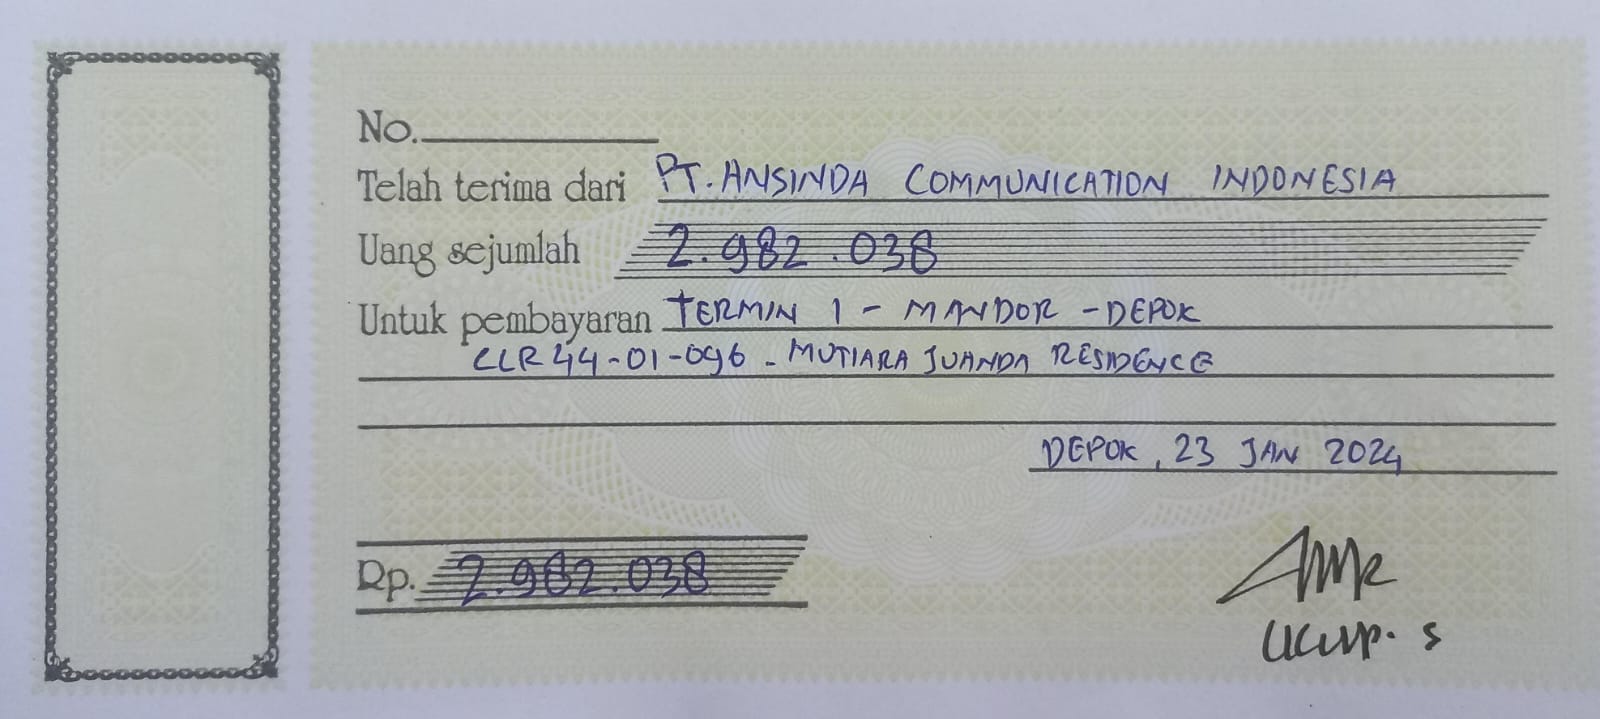 No.
Telah terima dari PT. ANSINDA COMMUNICATION INDONESIA
Uang sejumlah 2.982.038
Untuk pembayaran TERMIN 1 - MANDOR - DEPOK
CLR44-01-096 - MUTIARA JUANDA RESIDENCE
DEPOK, 23 JAN 2024
Rp. 2.982.038
Ucup. S